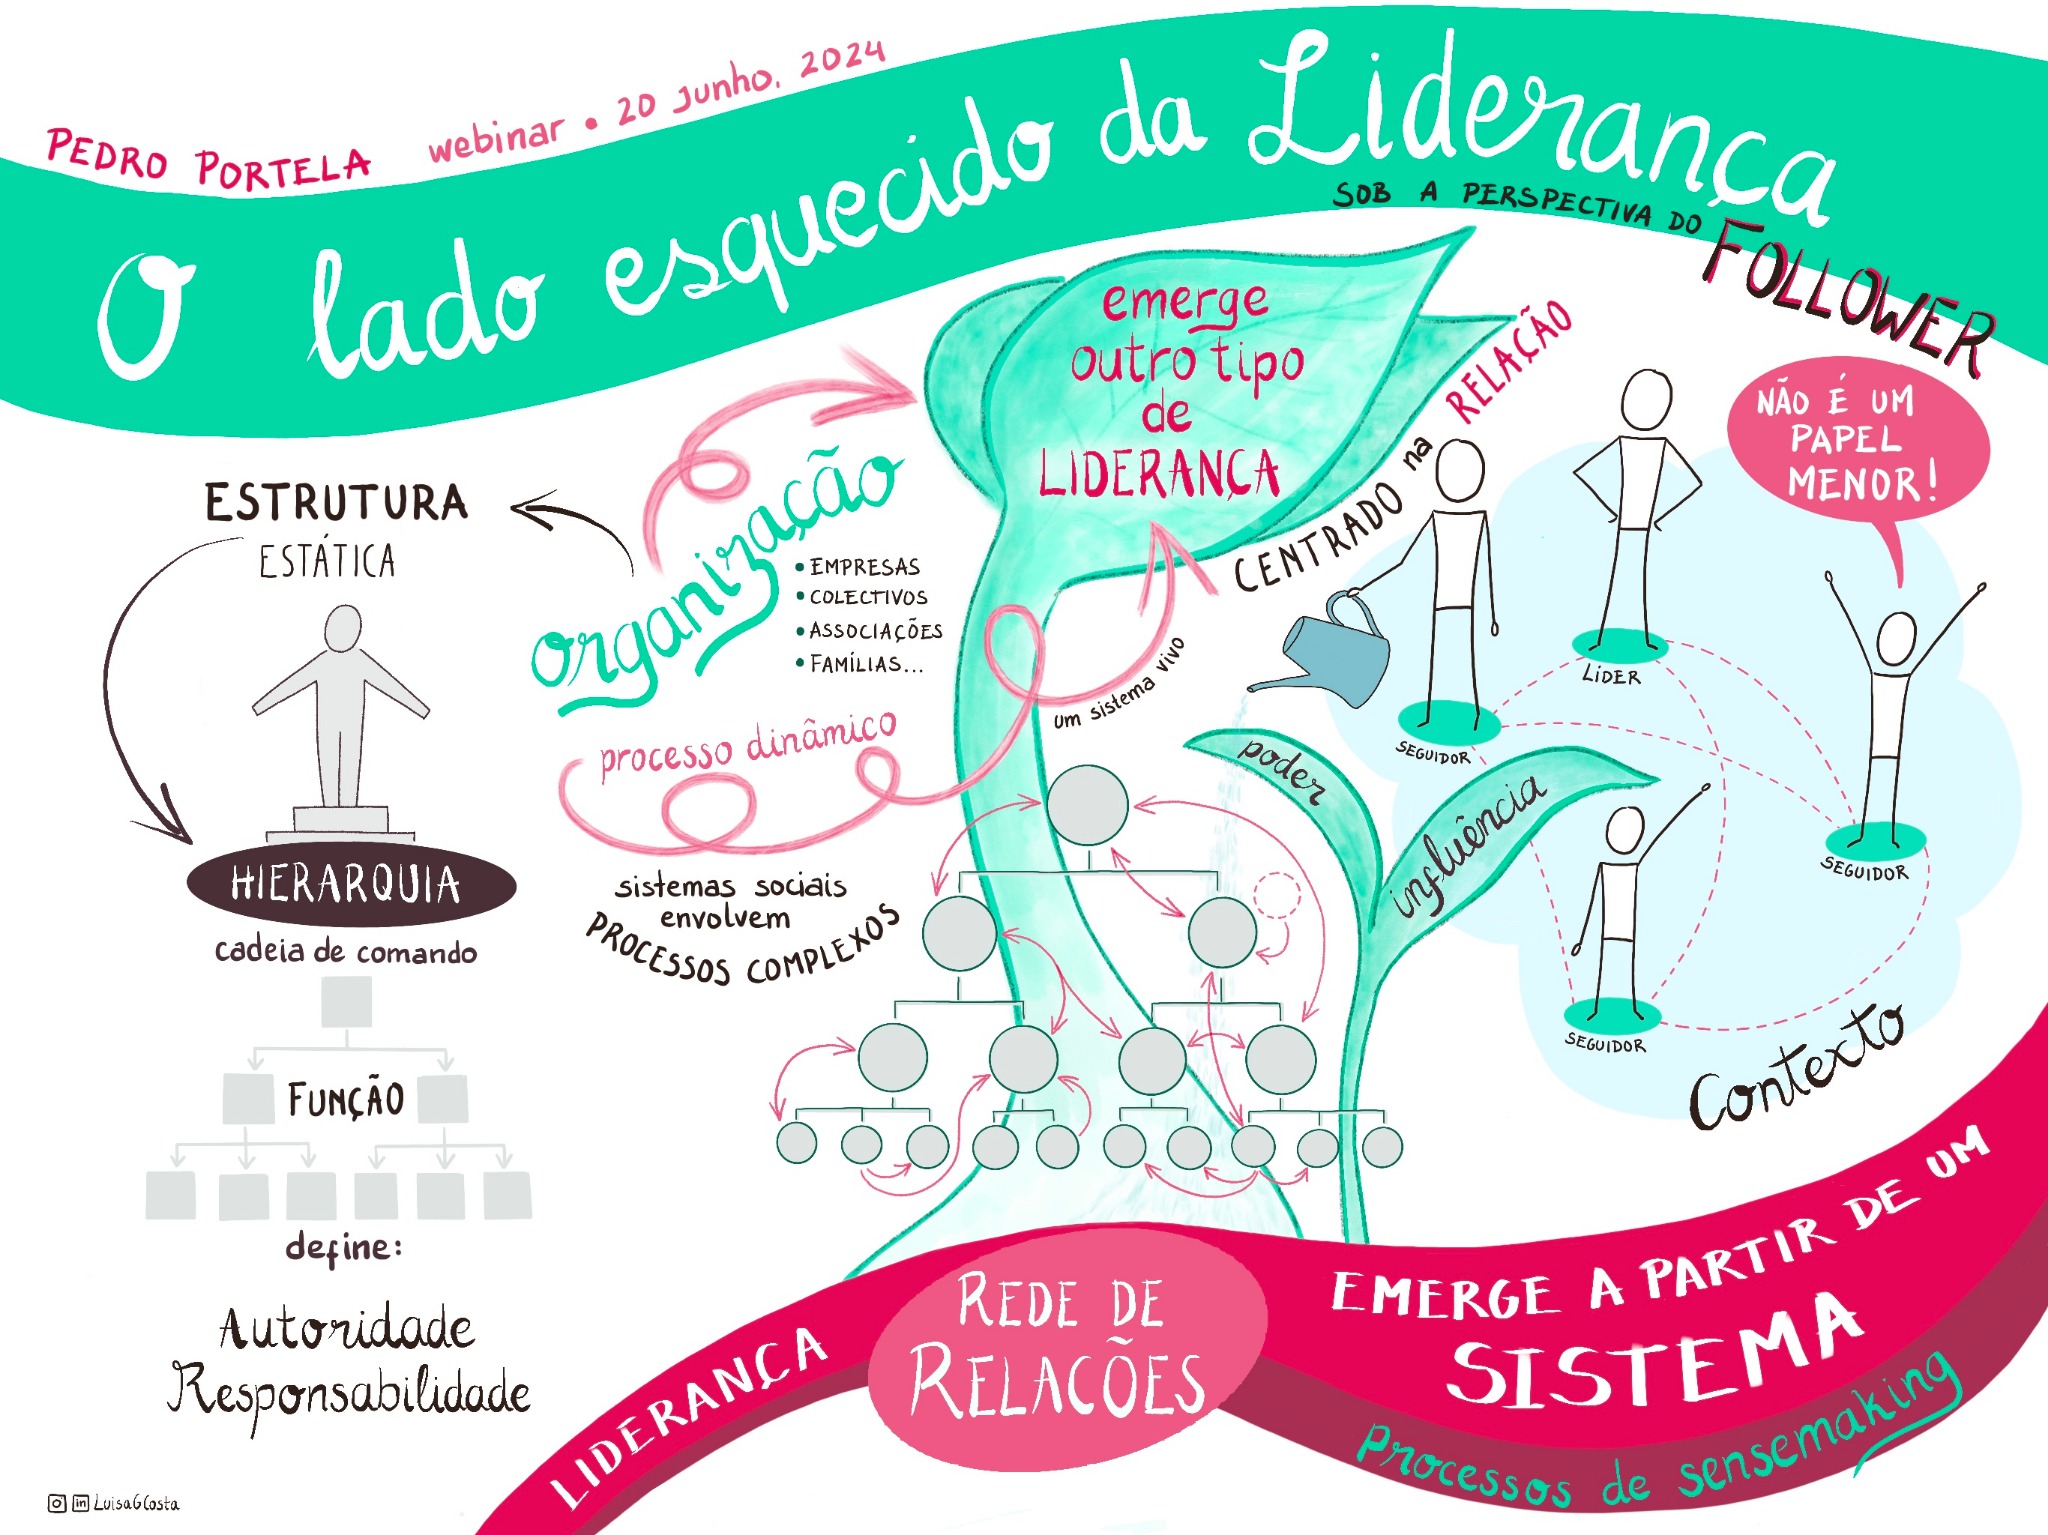 PEDRO PORTELA
webinar • 20 Junho, 2024
O lado esquecido da Liderança
SOB A PERSPECTIVA DO
FOLLOWER
ESTRUTURA
ESTÁTICA
HIERARQUIA
cadeia de comando
FUNÇÃO
define:
Autoridade
Responsabilidade
organização
• EMPRESAS
• COLECTIVOS
• ASSOCIAÇÕES
• FAMÍLIAS...
processo dinâmico
sistemas sociais
envolvem
PROCESSOS COMPLEXOS
emerge
outro tipo
de
LIDERANÇA
um sistema vivo
CENTRADO na RELAÇÃO
poder
influência
NÃO É UM
PAPEL
MENOR!
LÍDER
SEGUIDOR
SEGUIDOR
SEGUIDOR
Contexto
LIDERANÇA
REDE DE
RELACÕES
EMERGE A PARTIR DE UM
SISTEMA
Processos de sensemaking
in LuisaGCosta